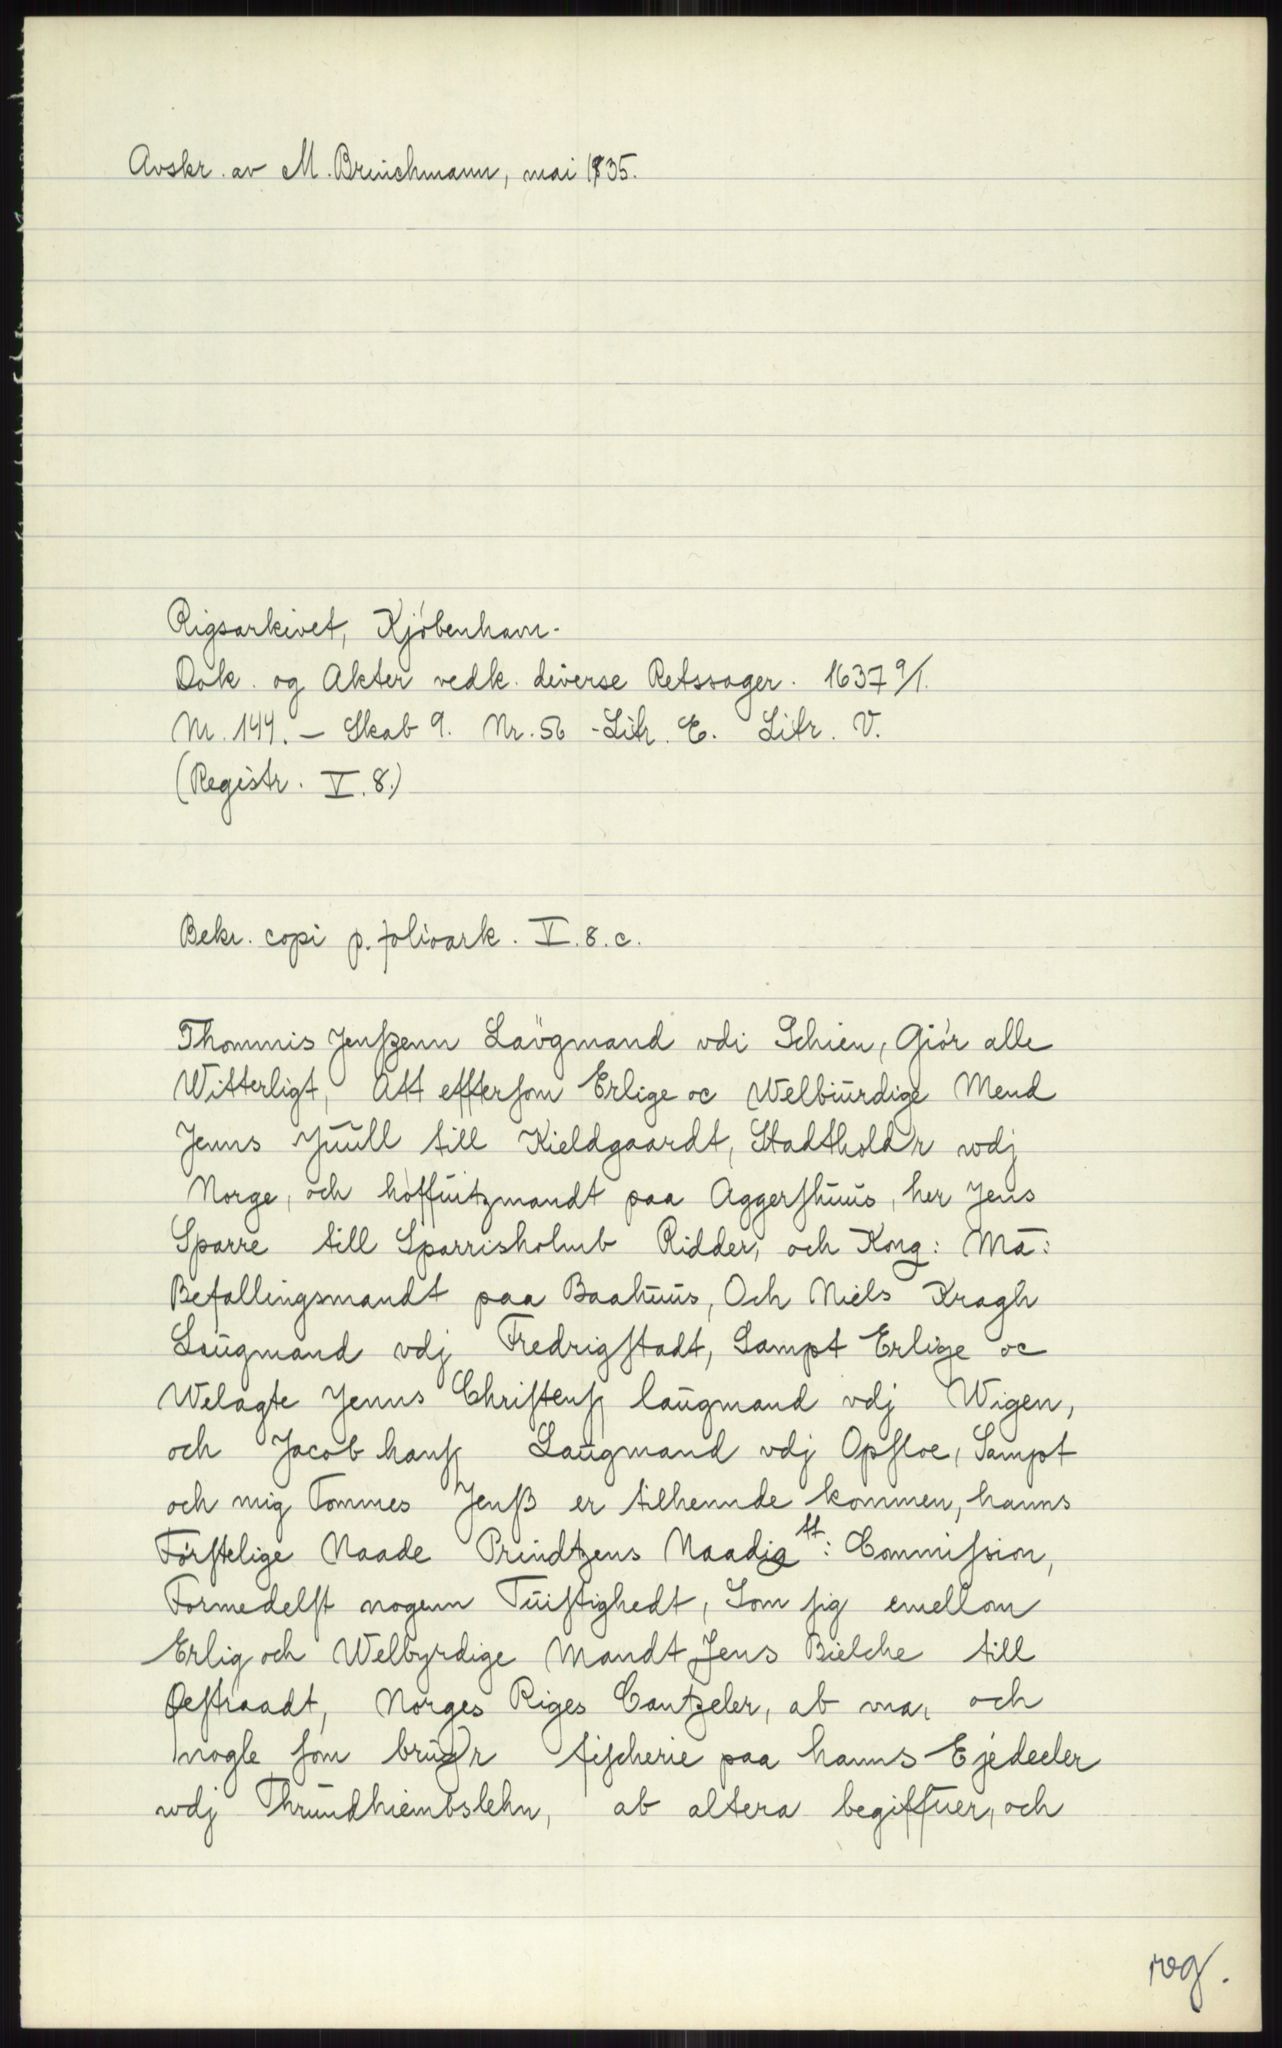 Avskr. av M. Brinchmann, mai 1935.
Rigsarkivet, Kjöbenhavn.
Dok. og Akter vedk. diverse Retssager. 1637 9/1.
Nr. 144. – Skab 9. Nr. 56 - Litr. E. Litr. V.
(Registr. V. 8.)
Bekr. copi p. folioark. V. 8. c.
Thommis Jenſzenn Laŭgmand vdi Schien, Giör alle
Witterligt, Att efftersom Erlige oc Welbiŭrdige Mend
Jenns Jŭŭll till Kieldgaardt, Stadtholdr wdj
Norge, och höffŭitzmandt paa Aggerſhŭŭs, her Jens
Sparre till Sparrisholmb Ridder, och Kong: Ma:
Befallingsmandt paa Baahŭŭs, Och Niels Kragh
Laŭgmand vdj Fredrigſtadt, Sampt Erlige oc
Welagte Jenns Chriſtenſz laŭgmand vdj Wigen,
och Jacob hanſz Laŭgmand vdj Opſloe, Sampt
och mig Tommes Jenß er tilhennde kommen, hanns
Förſtelige Naade Prindtzens Naadig tt: Commiſsion,
Formedelſt nogenn Tŭiſtighedt, Som ſig emellom
Erlig och Welbyrdige Mandt Jens Bielche till
Øeſtraadt, Norges Riges Cantzeler, ab una, och
nogle ſom brŭgr fiſcherie paa hanns Ejedeeler
wdj Thrŭndhiembslehn, ab altera begiffŭer, och